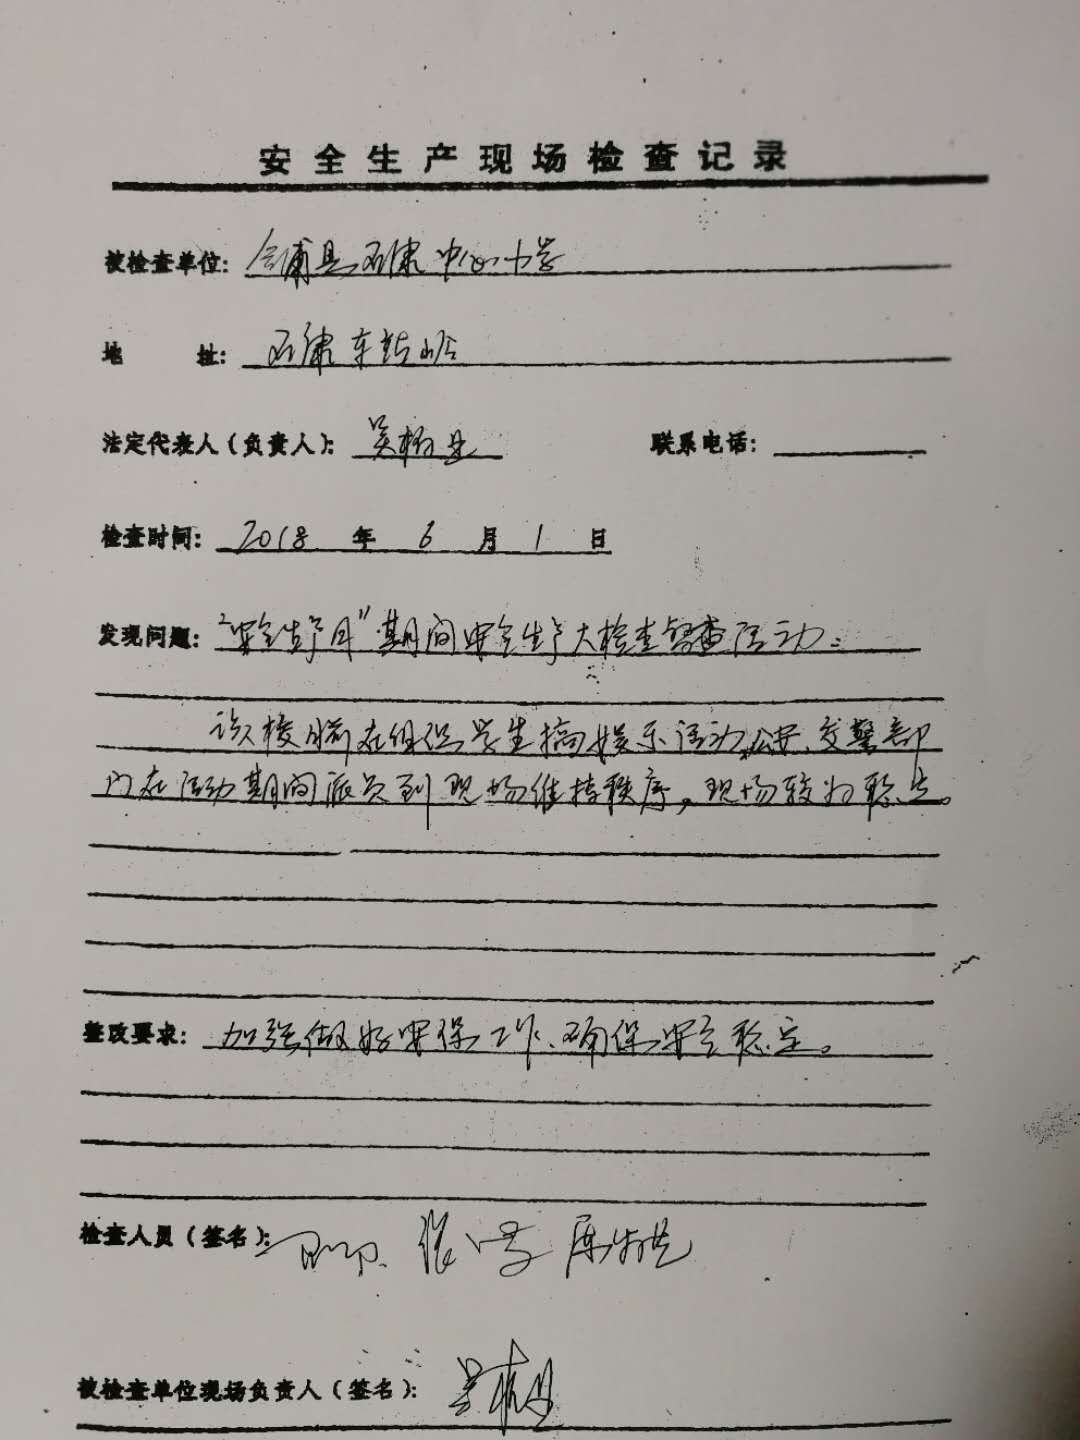 安全生产现场检查记录
被检查单位: 合浦县石康中心小学
地 址: 石康东鼓岭
法定代表人(负责人): 吴 联系电话:
检查时间: 2018 年 6 月 1 日
发现问题: "安全生产月"期间安全生产大检查督查活动:
该校 在组织学生搞娱乐活动,公安、交警部
门在活动期间派员到现场维持秩序,现场较为稳定。
整改要求: 加强做好安保工作、确保安全稳定。
检查人员(签名):
被检查单位现场负责人(签名): 吴